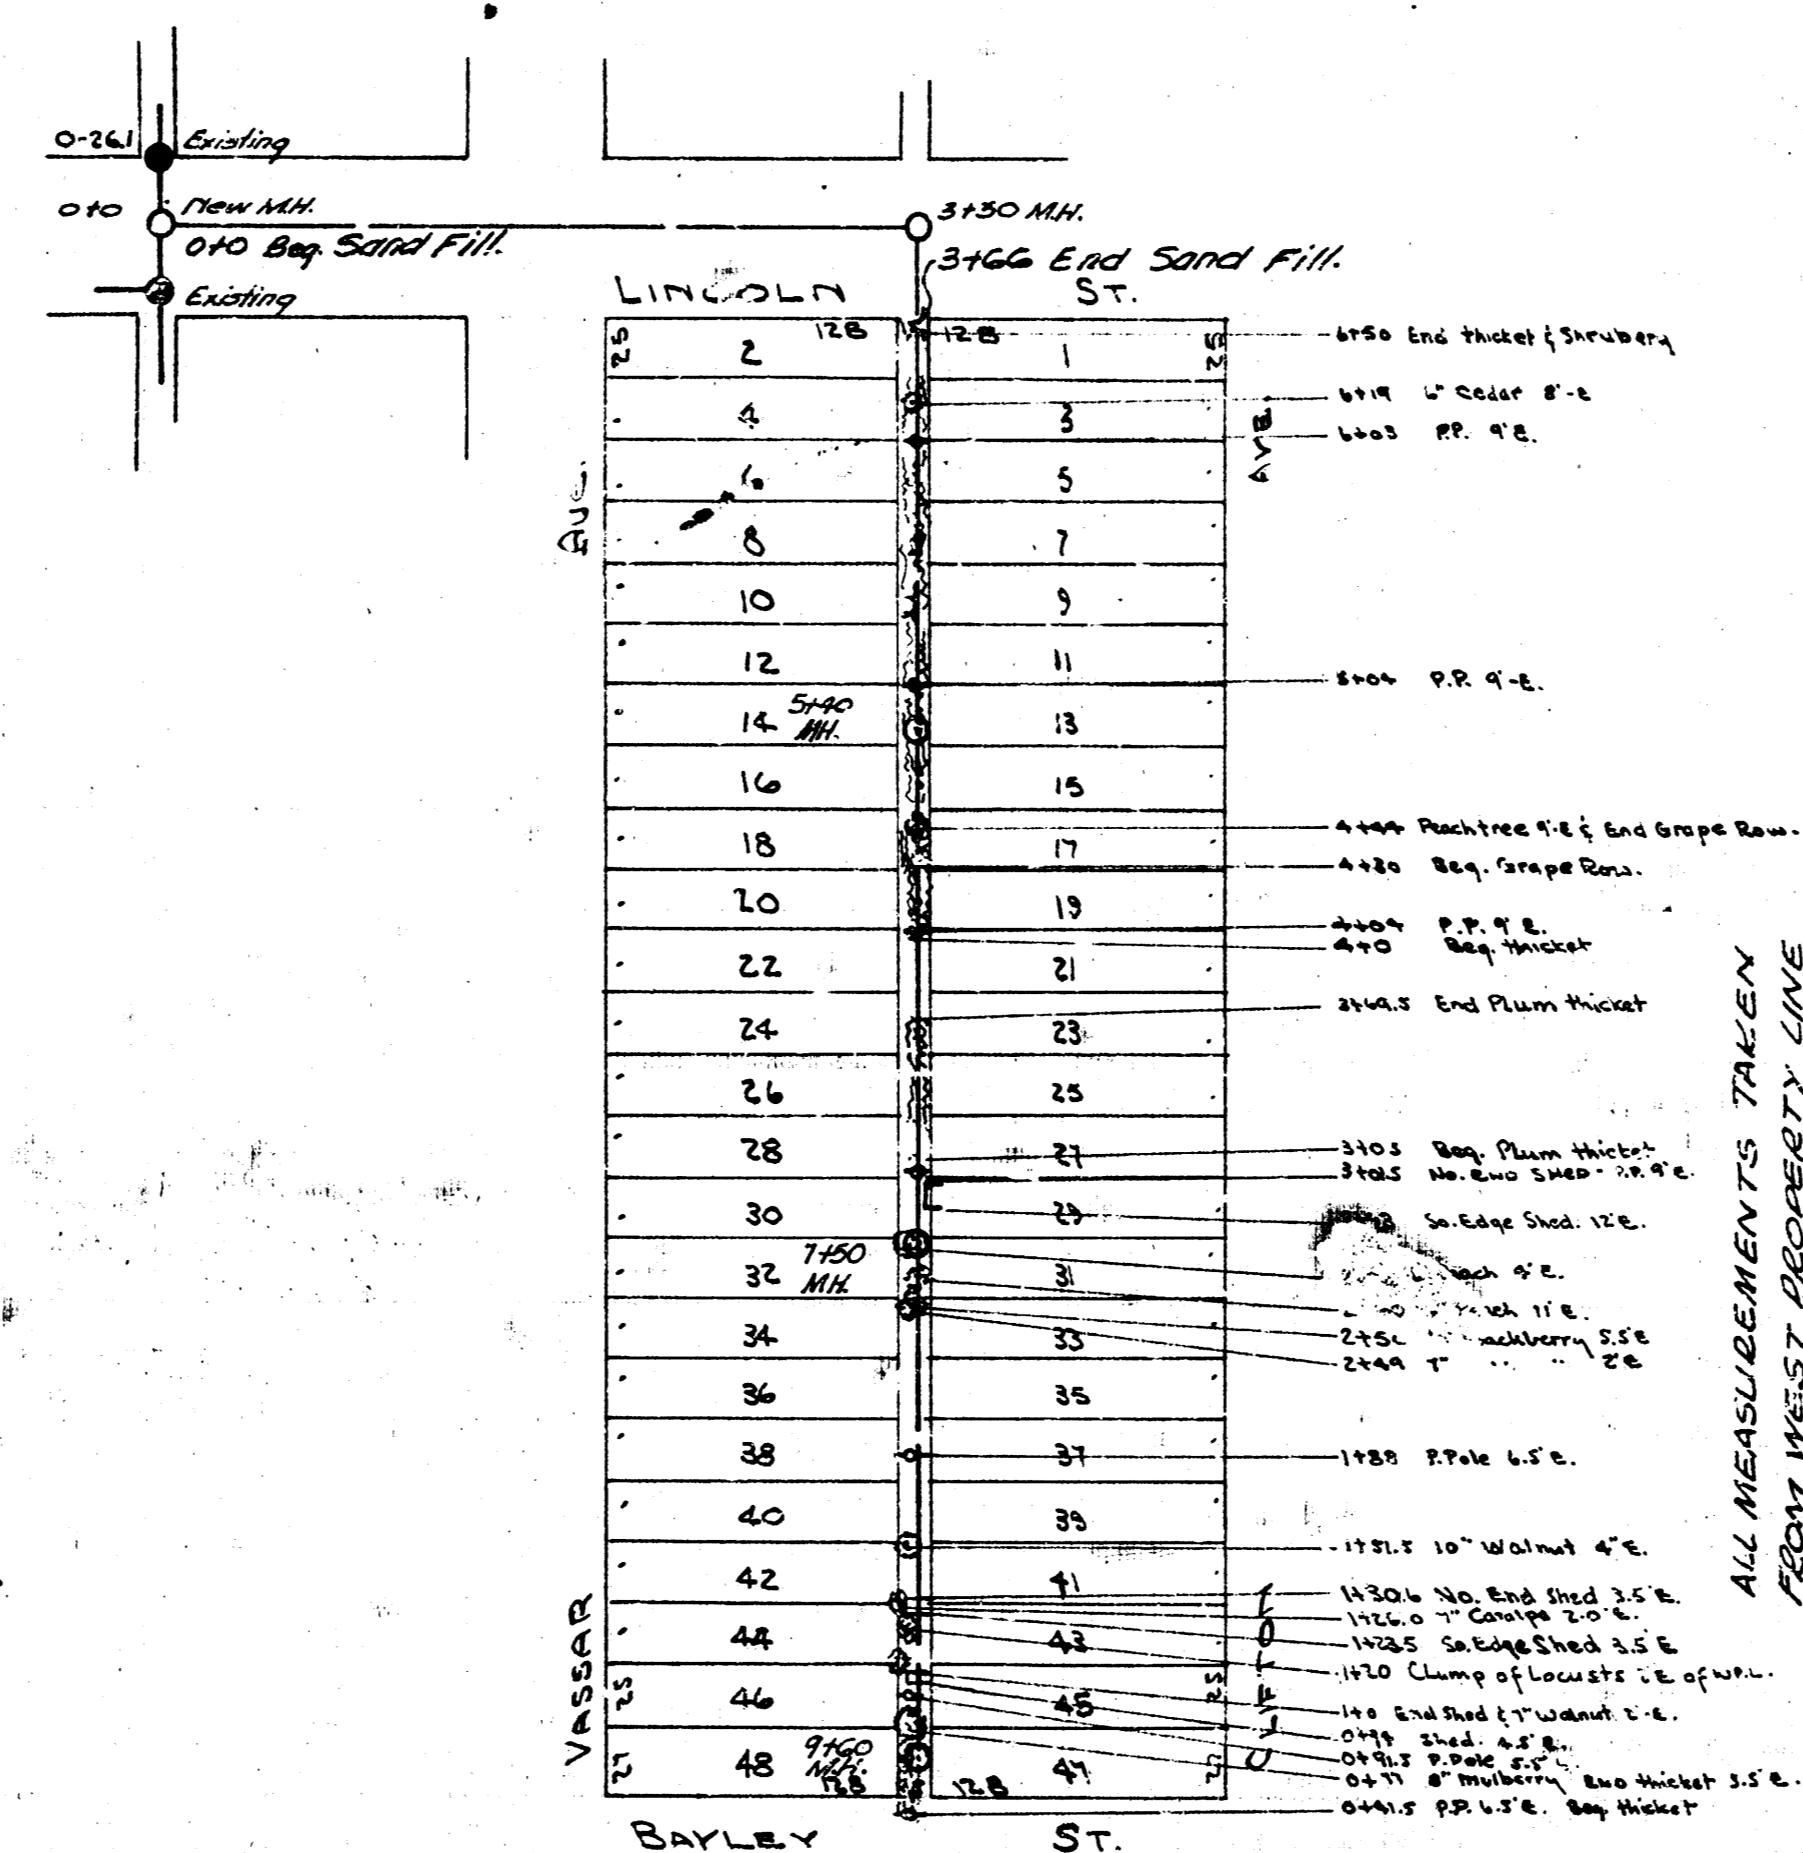 0-26.1 Existing
0+0 New M.H.
0+0 Beg. Sand Fill.
Existing
3+30 M.H.
3+66 End Sand Fill.
LINCOLN ST.
25 2 128 128 1 25
4 3
6 5
8 7
10 9
12 11
14 5+40 MH. 13
16 15
18 17
20 19
22 21
24 23
26 25
28 27
30 29
32 7+50 M.H. 31
34 33
36 35
38 37
40 39
42 41
44 43
25 46 45 25
27 48 9+60 M.H. 128 128 47 27
BAYLEY ST.
VASSAR AVE.
CLIFTON AVE
6+50 End thicket & Shrubery
6+19 6" Cedar 8'-E
6+03 P.P. 9'E.
5+04 P.P. 9'-E.
4+44 Peachtree 9'-E & End Grape Row.
4+30 Beg. Grape Row.
4+04 P.P. 9'E.
4+0 Beg. thicket
3+69.5 End Plum thicket
3+05 Beg. Plum thicket
3+01.5 No. END SHED - P.P. 9'E.
So. Edge Shed. 12'E.
9'E.
11'E.
5.5'E
2+49 7" " " 2'E
1+88 P.Pole 6.5'E.
1+51.5 10" Walnut 4'E.
1+30.6 No. End Shed 3.5'E.
1+26.0 7" Catalpa 2.0'E.
1+23.5 So. Edge Shed 3.5'E
1+20 Clump of Locusts E of W.P.L.
1+0 End Shed & 7" Walnut 2'-E.
0+94 Shed. 4.5'E.
0+91.5 P.Pole 5.5'
0+77 8" Mulberry END thicket 3.5'E.
0+41.5 P.P. 6.5'E. Beg. thicket
ALL MEASUREMENTS TAKEN
FROM WEST PROPERTY LINE